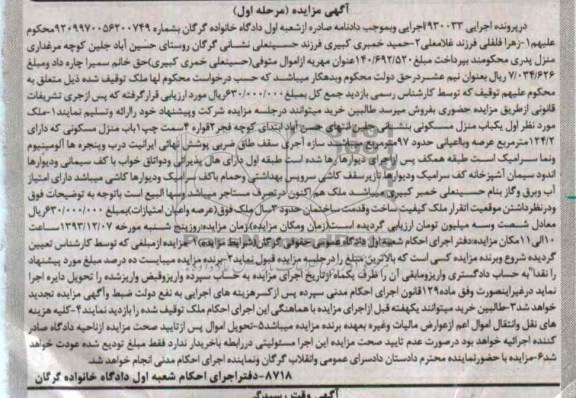 آگهی مزایده (مرحله اول)
درپرونده اجرایی ۹۳۰۰۳۳/اجرایی وبموجب دادنامه صادره ازشعبه اول دادگاه خانواده گرگان بشماره ۹۳۰۹۹۷۰۰۵۶۲۰۰۷۴۹محکوم
علیهم۱-زهرا فلفلی فرزند غلامعلی۲-حمید خمیری کبیری فرزند حسینعلی نشانی گرگان روستای حسین آباد جلین کوچه مرغداری
منزل پدری محکومند بپرداخت مبلغ۱۴۰/۶۹۲/۵۲۰عنوان مهریه ازاموال متوفی(حسینعلی خمری کبیری)حق خانم سمیرا چاره داد ومبلغ
۷/۰۳۴/۶۲۶ ریال بعنوان نیم عشردرحق دولت محکوم وبدهکار میباشند که حسب درخواست محکوم لها ملک توقیف شده ذیل متعلق به
محکوم علیهم توقیف که توسط کارشناس رسمی بازدید جمع کل بمبلغ۶۳۰/۰۰۰/۰۰۰ریال مورد ارزیابی قرارگرفته که پس ازجری تشریفات
قانونی ازطریق مزایده حضوری بفروش میرسد طالبین خرید میتوانند درجلسه مزایده شرکت وپیشنهاد خود راارائه وتسلیم نمایند۱-ملک
مورد نظر اول یکباب منزل مسکونی بنشانی جلین انتهای حسن آباد ابتدای کوچه فجر۴قواره ۴سمت چپ۱باب منزل مسکونی که دارای
۱۲۴/۲مترمربع عرصه وباعیانی حدود ۹۷مترمربع میباشند سازه آجری سقف طاق ضربی پوشش نهائی ایرانیت درب وپنجره ها آلومینیوم
ونما سرامیک است طبقه همکف پس اجرای دیوارها رها شده است طبقه اول دارای هال پذیرائی ودواتاق خواب با کف سیمانی ودیوارها
اندود سیمان آشپزخانه کف سرامیک ودیوارها تازیرسقف کاشی سرویس بهداشتی وحمام باکف سرامیک ودیوارها کاشی میباشد دارای امتیاز
آب وبرق وگاز بنام حسینعلی خمیر کبیری میباشند ملک هم اکنون درتصرف مستاجر میباشد وسها البیع است باتوجه به توضیحات فوق
ودرنظرداشتن موقعیت اتقرار ملک کیفیت ساخت وقدمت ساختمان حدود ۳سال ملک فوق(عرصه واعیان امتیازات)بمبلغ ۶۳۰/۰۰۰/۰۰۰ریال
معادل شصت وسه میلیون تومان ارزیابی گردیده است(زمان ومکان مزایده)زمان مزایده:روزپنج شنبه مورخه ۱۳۹۳/۱۲/۰۷ساعت
۱۰الی۱۱مکان مزایده:دفتر اجرای احکام شعبه اول دادگاه عمومی حقوقی گرگان(شرایط مزایده)۱-مزایده ازمبلغی که توسط کارشناس تعیین
گردیده شروع وبرنده مزایده کسی است که بالاترین مبلغ را درجلسه مزایده قبول نماید۲-برنده مزایده میبایست ده درصد مبلغ مورد پیشنهاد
را نقدا"به حساب دادگستری واریزومابقی آن را ظرف یکماه ازتاریخ اجرای مزایده به حساب سپرده واریزوقبض واریزشده را تحویل دایره اجرا
نماید درغیراینصورت وفق ماده۱۲۹قانون اجرای احکام مدنی سپرده پس ازکسرهزینه های اجرایی به نفع دولت ضبط وآگهی مزایده تجدید
خواهد شد۳-طالبین خرید میتوانند یکهفته قبل ازاجرای مزایده با هماهنگی این اجرای احکام ملک توقیف شده را بازدید نمایند۴-کلیه هزینه
های نقل وانتقال اموال اعم ازعوارض مالیات وغیره بعهده برنده مزایده میباشد۵-تحویل اموال پس ازتایید صحت مزایده ازناحیه دادگاه صادر
کننده اجرائیه خواهد بود درصورت عدم تایید صحت مزایده این اجرا مسئولیتی دررابطه باخریدار ندارد فقط مبلغ تودیع شده عودت خواهد
شد۶-مزایده با حضورنماینده محترم دادستان دادسرای عمومی وانقلاب گرگان ونماینده اجرای احکام مدنی انجام خواهد شد.
۸۷۱۸-دفتراجرای احکام شعبه اول دادگاه خانواده گرگان
آگهی وقت رسیدگی